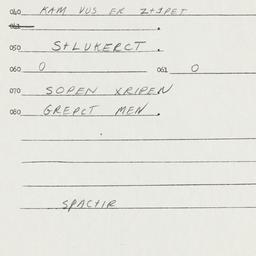 040 KAM VUS ER Z+1PET
041 .
050 S+LUKERCT .
060 O 061 O
070 SOPEN XRIPEN
080 GREPCT MEN .
SPACTIR